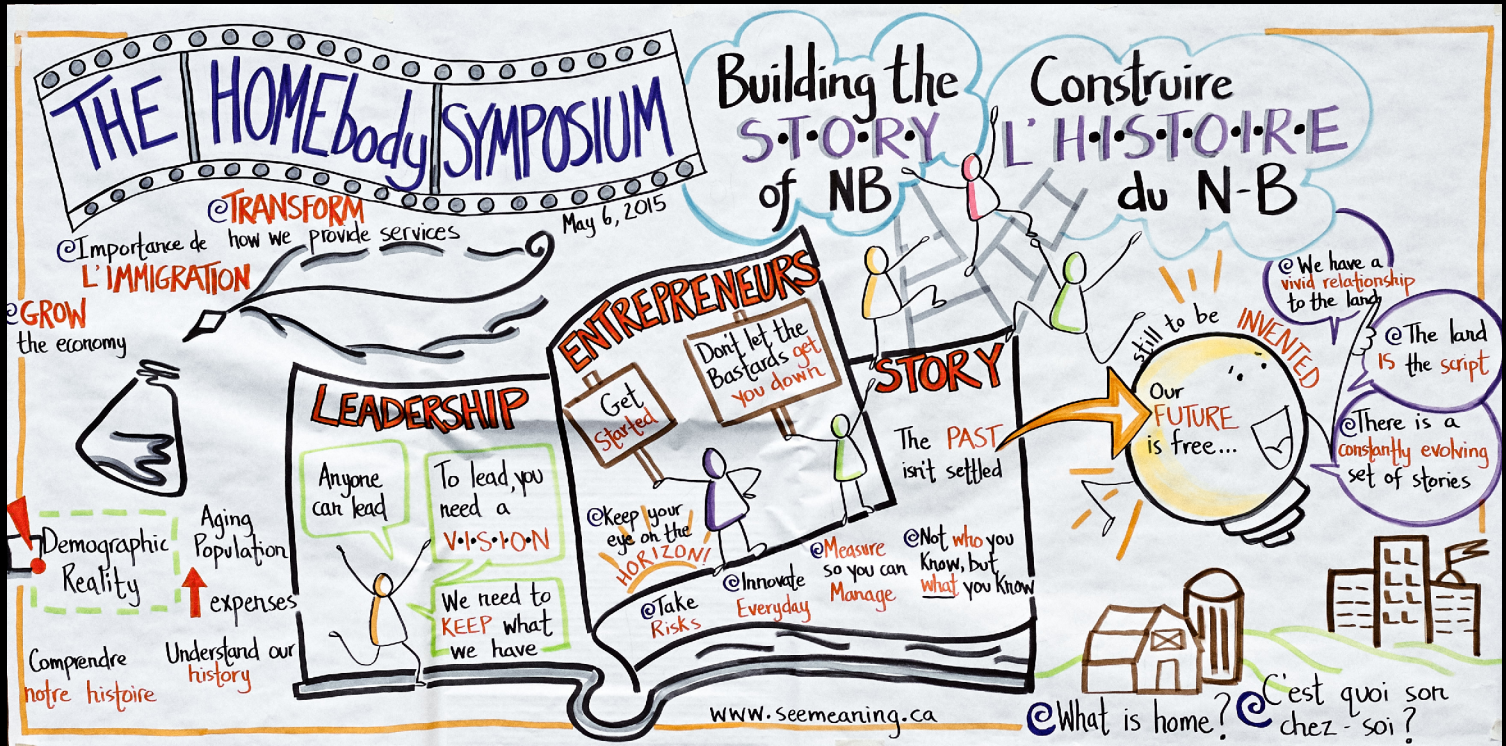 THE HOMEbody SYMPOSIUM
May 6, 2015
Building the
S·T·O·R·Y
of NB
Construire
L'H·I·S·T·O·I·R·E
du N-B
TRANSFORM
how we provide services
Importance de
L'IMMIGRATION
GROW
the economy
Demographic
Reality
Aging
Population
expenses
Comprendre
notre histoire
Understand our
history
LEADERSHIP
Anyone
can lead
To lead, you
need a
V·I·S·I·O·N
We need to
KEEP what
we have
ENTREPRENEURS
Get
Started
Don't let the
Bastards get
you down
Keep your
eye on the
HORIZON!
Take
Risks
Innovate
Everyday
Measure
so you can
Manage
Not who you
Know, but
what you know
STORY
The PAST
isn't settled
Our
FUTURE
is free...
still to be INVENTED
We have a
vivid relationship
to the land
The land
IS the script
There is a
constantly evolving
set of stories
What is home?
C'est quoi son
chez-soi?
www.seemeaning.ca